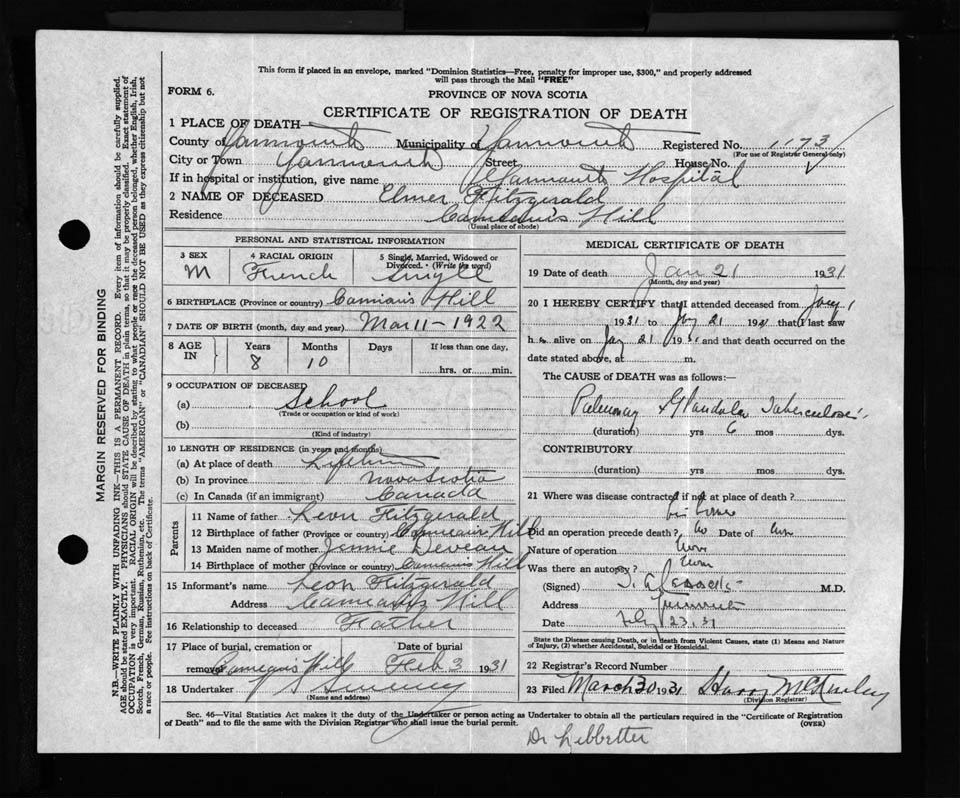 This form if placed in an envelope, marked "Dominion Statistics—Free, penalty for improper use, $300," and properly addressed
will pass through the Mail "FREE"
FORM 6.
PROVINCE OF NOVA SCOTIA
CERTIFICATE OF REGISTRATION OF DEATH
1 PLACE OF DEATH—
County of Yarmouth Municipality of Yarmouth Registered No. 1173
(For use of Registrar General only)
City or Town Yarmouth Street House No.
If in hospital or institution, give name Yarmouth Hospital
2 NAME OF DECEASED Elmer Fitzgerald
Residence Comeau's Hill
(Usual place of abode)
PERSONAL AND STATISTICAL INFORMATION
3 SEX 4 RACIAL ORIGIN 5 Single, Married, Widowed or Divorced. (Write the word)
M French Single
6 BIRTHPLACE (Province or country) Comeau's Hill
7 DATE OF BIRTH (month, day and year) Mar 11 - 1922
8 AGE IN Years Months Days If less than one day,
8 10 hrs. or min.
9 OCCUPATION OF DECEASED
(a) School
(Trade or occupation or kind of work)
(b)
(Kind of industry)
10 LENGTH OF RESIDENCE (in years and months)
(a) At place of death Lifetime
(b) In province Nova Scotia
(c) In Canada (if an immigrant) Canada
Parents
11 Name of father Leon Fitzgerald
12 Birthplace of father (Province or country) Comeau's Hill
13 Maiden name of mother Jennie Deveau
14 Birthplace of mother (Province or country) Comeau's Hill
15 Informant's name Leon Fitzgerald
Address Comeau's Hill
16 Relationship to deceased Father
17 Place of burial, cremation or Date of burial
removal Comeau's Hill Feb 3 1931
18 Undertaker Sweeney
(Name and address)
MEDICAL CERTIFICATE OF DEATH
19 Date of death Jan 21 1931
(Month, day and year)
20 I HEREBY CERTIFY that I attended deceased from Jany 1
1931 to Jany 21 1931 that I last saw
h alive on Jan 21 1931 and that death occurred on the
date stated above, at m.
The CAUSE of DEATH was as follows:
Pulmonary Glandular Tuberculosis
(duration) yrs 6 mos dys.
CONTRIBUTORY
(duration) yrs mos dys.
21 Where was disease contracted if not at place of death?
home
Did an operation precede death? No Date of
Nature of operation
Was there an autopsy?
(Signed) M.D.
Address Yarmouth
Date 23.31
State the Disease causing Death, or in death from Violent Causes, state (1) Means and Nature
of Injury, (2) whether Accidental, Suicidal or Homicidal.
22 Registrar's Record Number
23 Filed March 30 1931 Harry McKinley
(Division Registrar)
Sec. 46—Vital Statistics Act makes it the duty of the Undertaker or person acting as Undertaker to obtain all the particulars required in the "Certificate of Registration
of Death" and to file the same with the Division Registrar who shall issue the burial permit. (OVER)
Dr Lebbetter
MARGIN RESERVED FOR BINDING
N.B.—WRITE PLAINLY WITH UNFADING INK—THIS IS A PERMANENT RECORD. Every item of information should be carefully supplied.
AGE should be stated EXACTLY. PHYSICIANS should STATE CAUSE OF DEATH in plain terms, so that it may be properly classified. Exact statement of
OCCUPATION is very important. RACIAL ORIGIN will be described by stating to what people or race the deceased person belonged, whether English, Irish,
Scotch, French, German, Russian, Ruthenian, etc. The terms "AMERICAN" or "CANADIAN" SHOULD NOT BE USED as they express citizenship but not
a race or people. See instructions on back of Certificate.